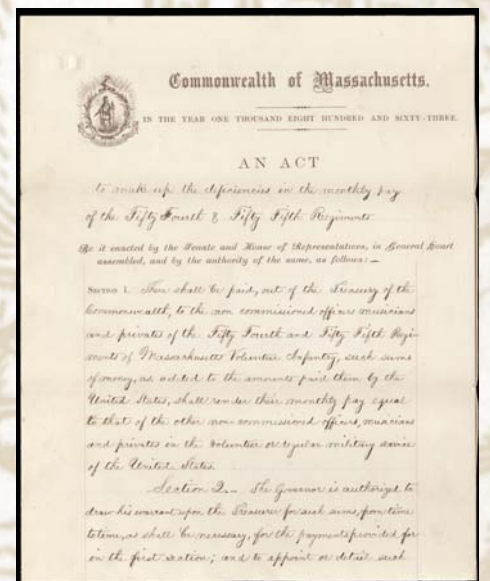 Commonwealth of Massachusetts.
IN THE YEAR ONE THOUSAND EIGHT HUNDRED AND SIXTY-THREE.
AN ACT
to make up the deficiencies in the monthly pay
of the Fifty Fourth & Fifty Fifth Regiments
Be it enacted by the Senate and House of Representatives, in General Court
assembled, and by the authority of the same, as follows:—
SECTION 1. There shall be paid, out of the Treasury of the
Commonwealth, to the non commissioned officers musicians
and privates of the Fifty Fourth and Fifty Fifth Regi-
ments of Massachusetts Volunteer Infantry, such sums
of money, as added to the amounts paid them by the
United States, shall render their monthly pay equal
to that of the other non-commissioned officers, musicians
and privates in the volunteer or regular military service
of the United States.
Section 2.— The Governor is authorized to
draw his warrant upon the Treasurer for such sums, from time
to time, as shall be necessary, for the payments provided for
in the first section; and to appoint or detail such